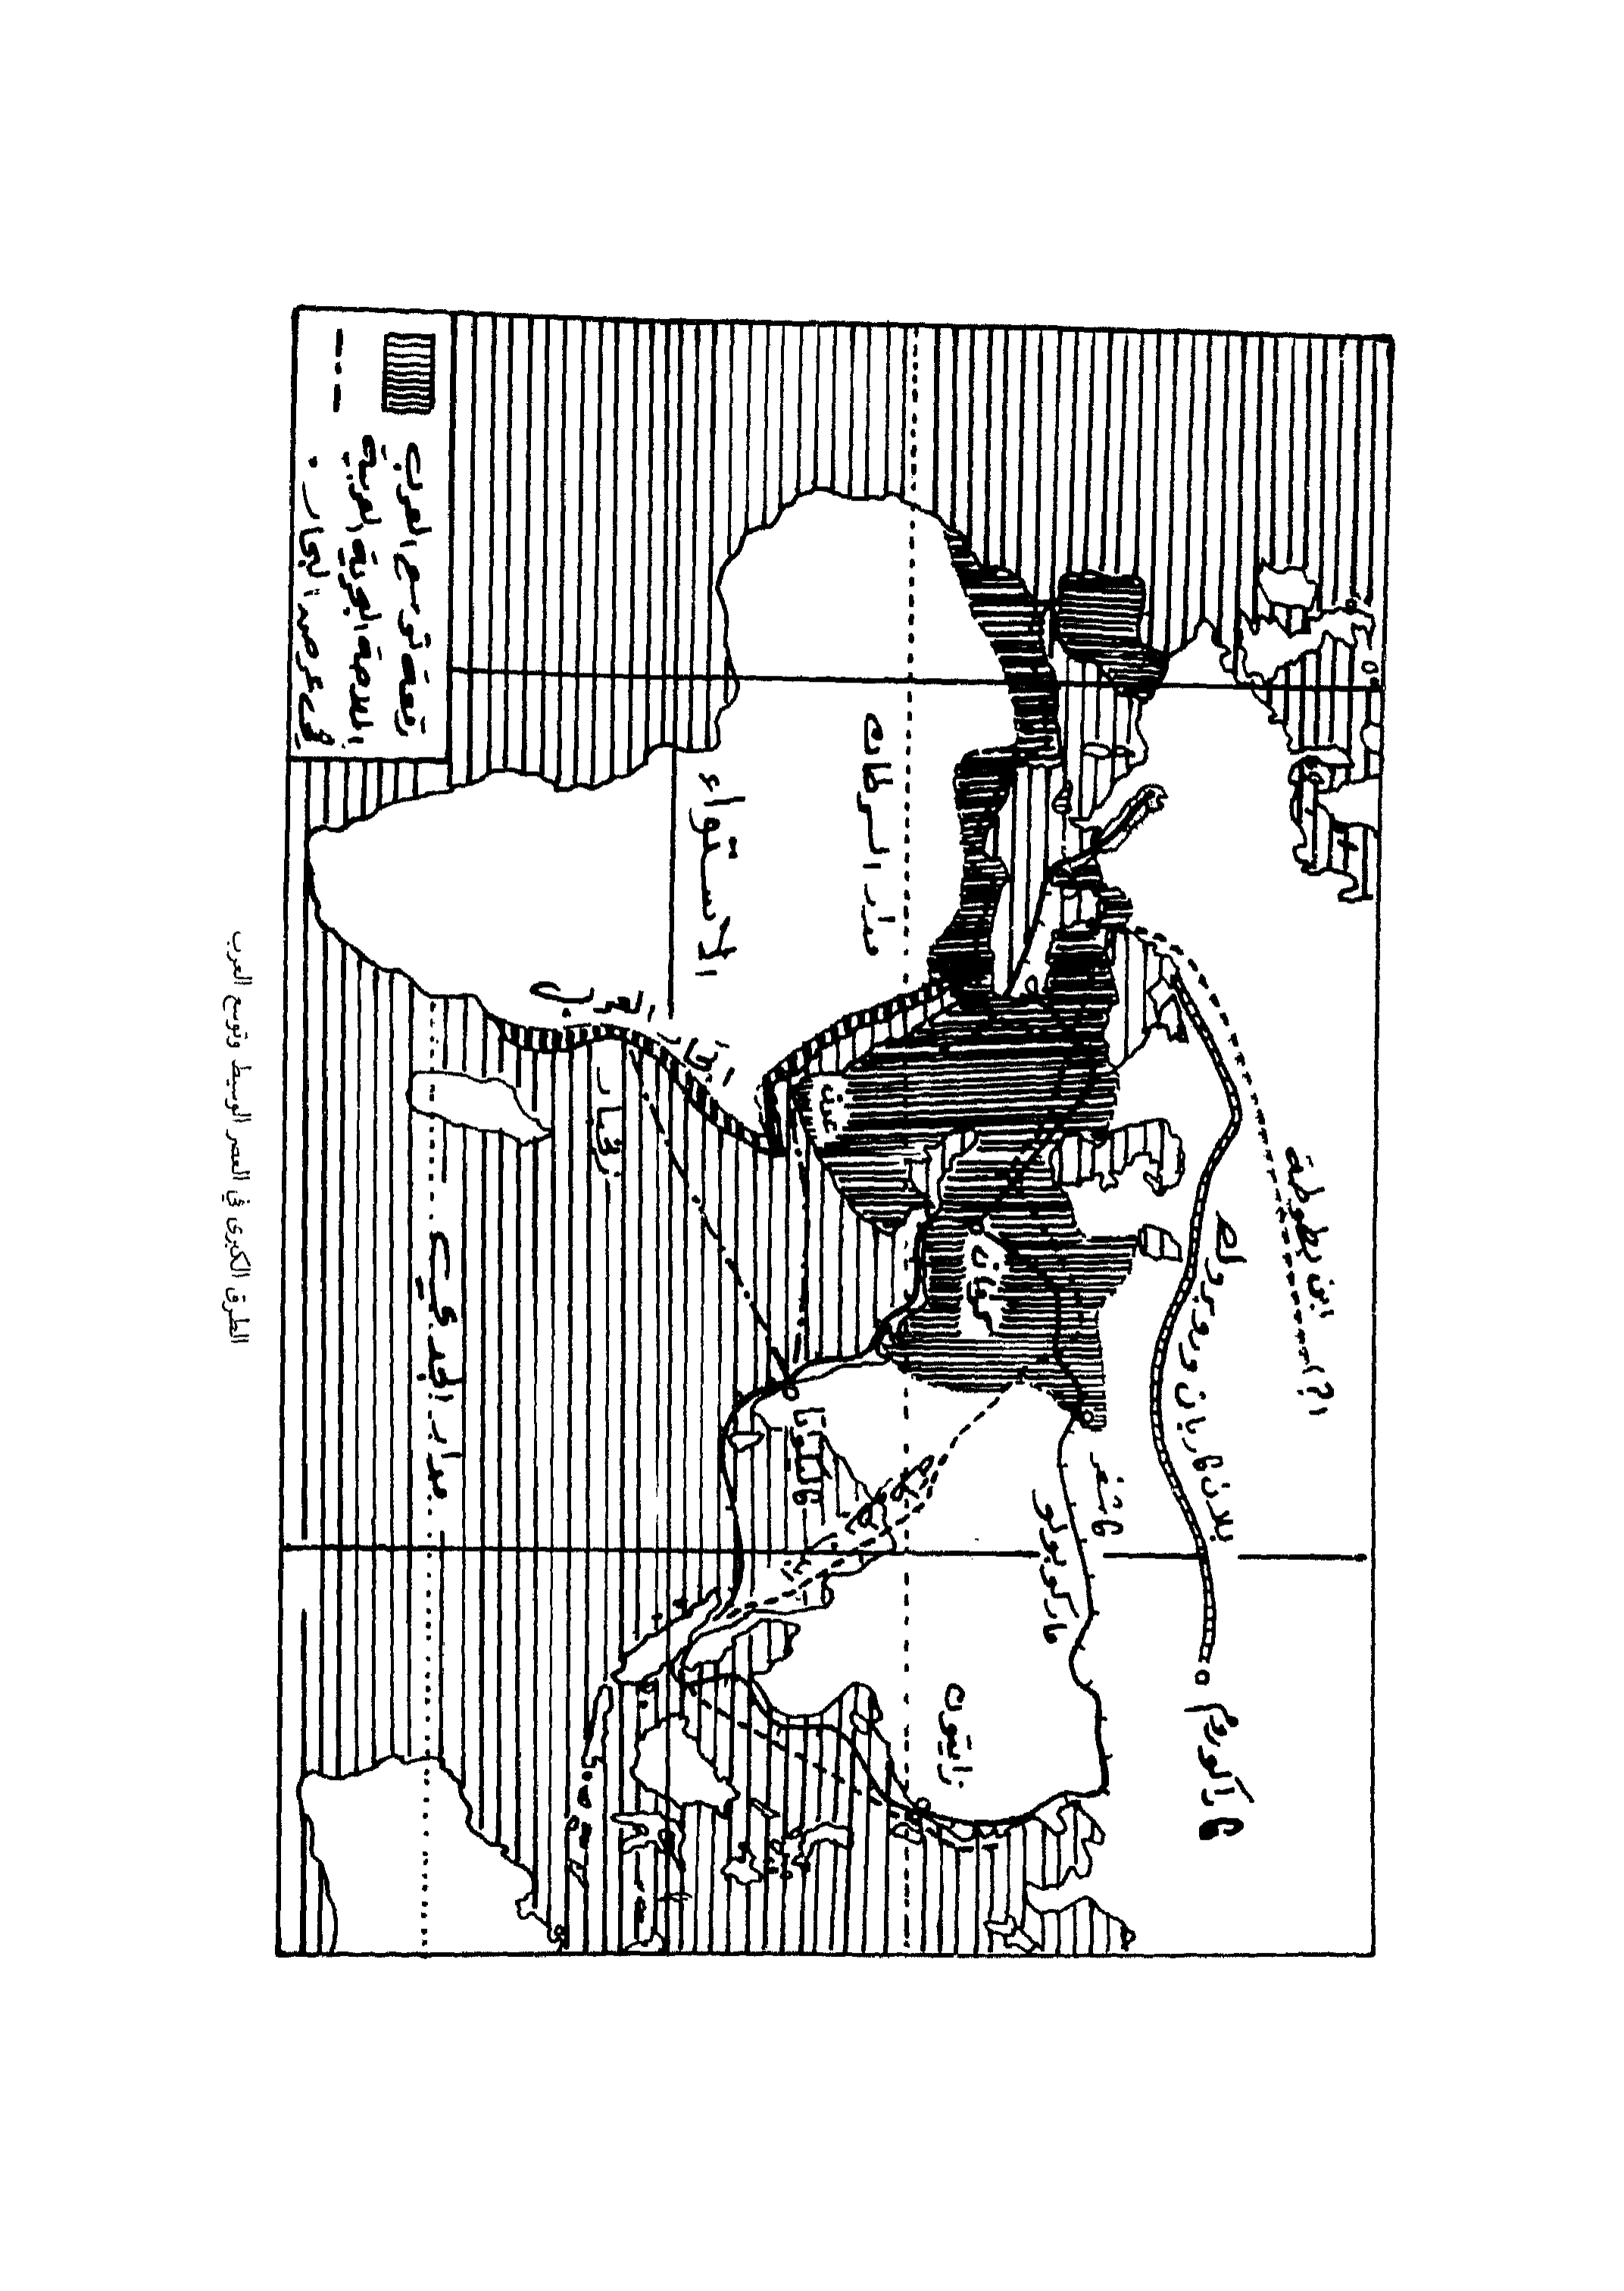 ابن بطوطة
بلان كاربان وروبروك
كارآكورم
كاشغر
ماركوبولو
زايتون
مدار السرطان
عدن
كاليكوتا
الاستواء
التجار العرب
زنجبار
مدار الجدي
منطقة توسع العرب
الملاحة البحرية العربية
في عرض البحار .
الطرق الكبرى في العصر الوسيط وتوسع العرب